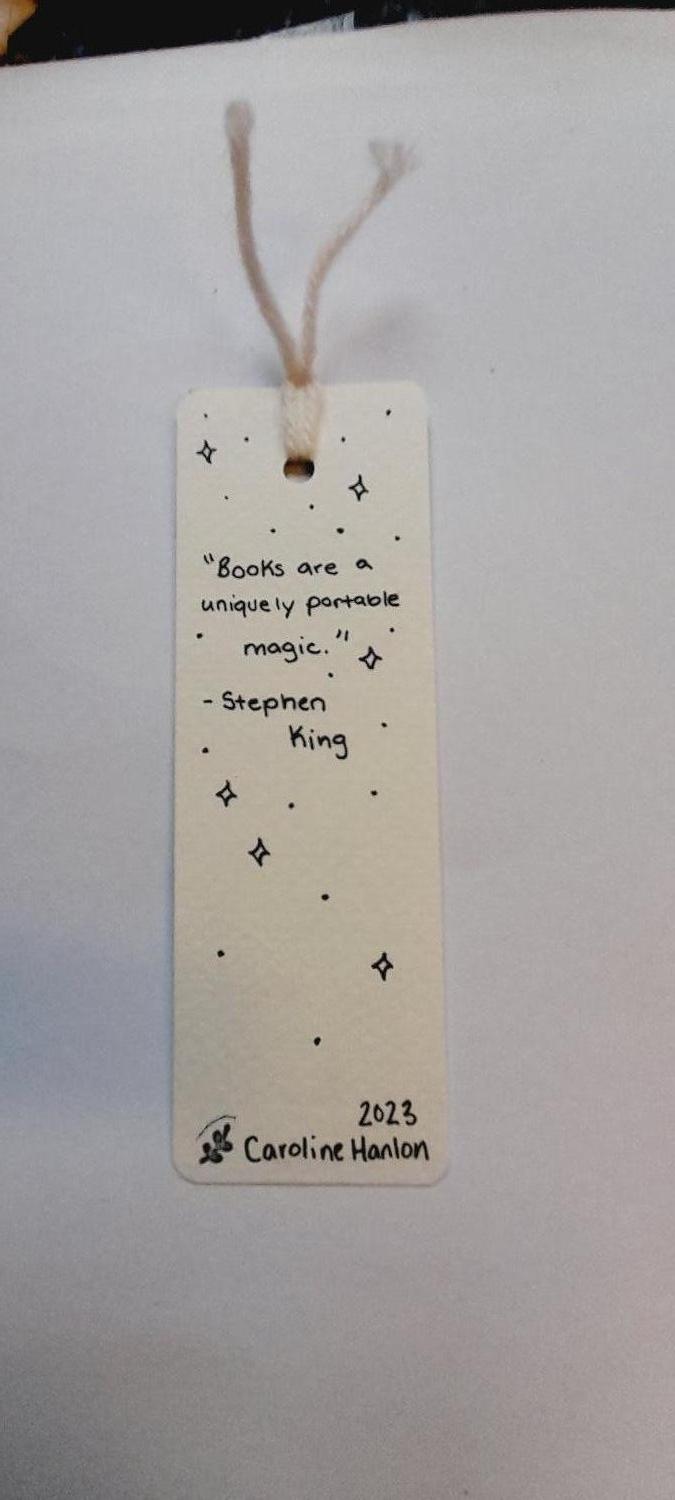 "Books are a
uniquely portable
magic."
- Stephen
King
2023
Caroline Hanlon